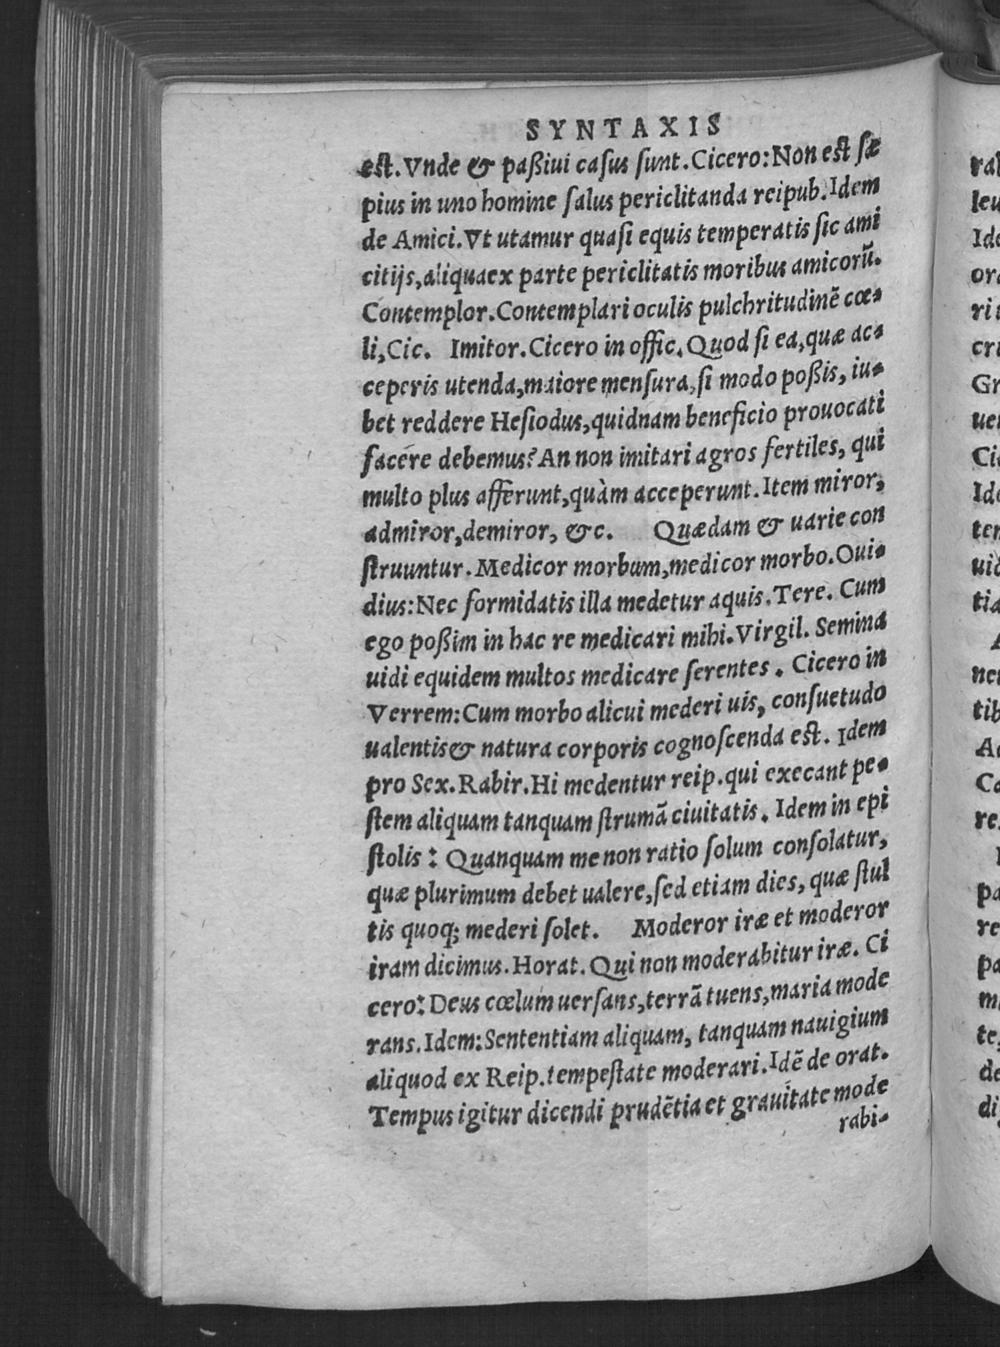 SYNTAXIS
est. Vnde & paßiui casus sunt. Cicero: Non est sæ
pius in uno homine salus periclitanda reipub. Idem
de Amici. Vt utamur quasi equis temperatis sic ami
citijs, aliqua ex parte periclitatis moribus amicorũ.
Contemplor. Contemplari oculis pulchritudinẽ cœ-
li, Cic. Imitor. Cicero in offic. Quod si ea, quæ ac-
ceperis utenda, maiore mensura, si modo poßis, iu-
bet reddere Hesiodus, quidnam beneficio prouocati
facere debemus? An non imitari agros fertiles, qui
multo plus afferunt, quàm acceperunt. Item miror,
admiror, demiror, &c. Quædam & uarie con
struuntur. Medicor morbum, medicor morbo. Oui-
dius: Nec formidatis illa medetur aquis. Tere. Cum
ego poßim in hac re medicari mihi. Virgil. Semina
uidi equidem multos medicare serentes. Cicero in
Verrem: Cum morbo alicui mederi uis, consuetudo
ualentis & natura corporis cognoscenda est. Idem
pro Sex. Rabir. Hi medentur reip. qui execant pe-
stem aliquam tanquam strumã ciuitatis. Idem in epi
stolis: Quanquam me non ratio solum consolatur,
quæ plurimum debet ualere, sed etiam dies, quæ stul
tis quoq; mederi solet. Moderor iræ et moderor
iram dicimus. Horat. Qui non moderabitur iræ. Ci
cero: Deus cœlum uersans, terrã tuens, maria mode
rans. Idem: Sententiam aliquam, tanquam nauigium
aliquod ex Reip. tempestate moderari. Idẽ de orat.
Tempus igitur dicendi prudẽtia et grauitate mode
rabi-